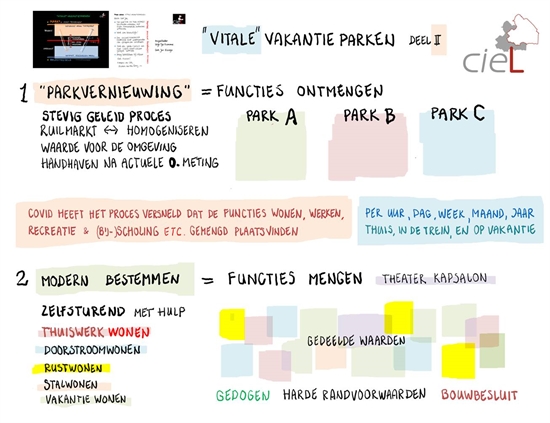 "VITALE" VAKANTIE PARKEN DEEL II
cieL
1 "PARKVERNIEUWING" = FUNCTIES ONTMENGEN
STEVIG GELEID PROCES
RUILMARKT ↔ HOMOGENISEREN
WAARDE VOOR DE OMGEVING
HANDHAVEN NA ACTUELE 0.METING
PARK A
PARK B
PARK C
COVID HEEFT HET PROCES VERSNELD DAT DE FUNCTIES WONEN, WERKEN,
RECREATIE & (BIJ-)SCHOLING ETC. GEMENGD PLAATSVINDEN
PER UUR, DAG, WEEK, MAAND, JAAR
THUIS, IN DE TREIN, EN OP VAKANTIE
2 MODERN BESTEMMEN = FUNCTIES MENGEN THEATER KAPSALON
ZELFSTUREND MET HULP
THUISWERK WONEN
DOORSTROOMWONEN
RUSTWONEN
STALWONEN
VAKANTIE WONEN
GEDEELDE WAARDEN
GEDOGEN HARDE RANDVOORWAARDEN BOUWBESLUIT